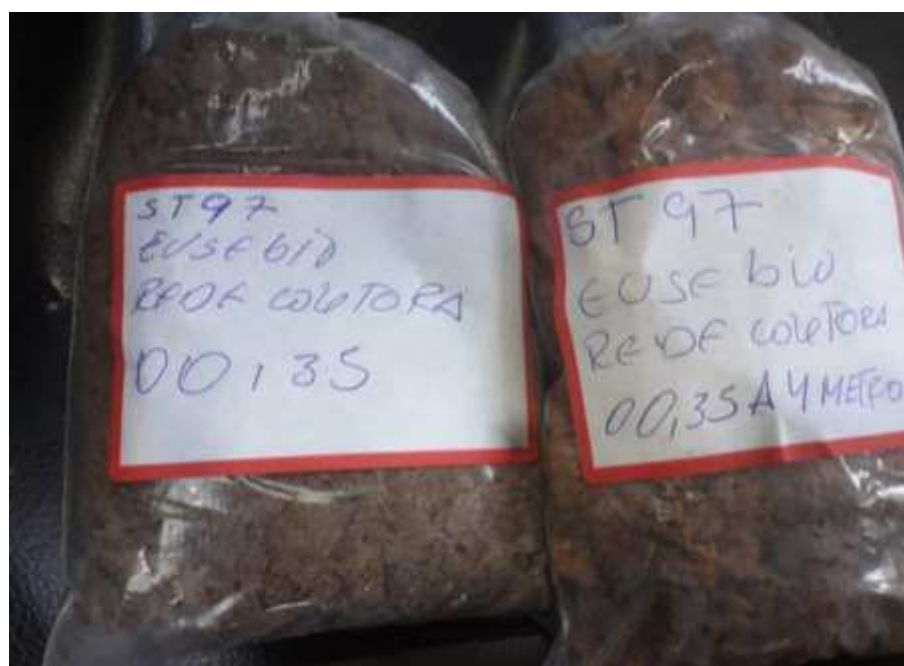 ST 97
EUSEbiO
REDE COLETORA
00,35
ST 97
EUSEbiO
REDE COLETORA
00,35 A 4 METRO